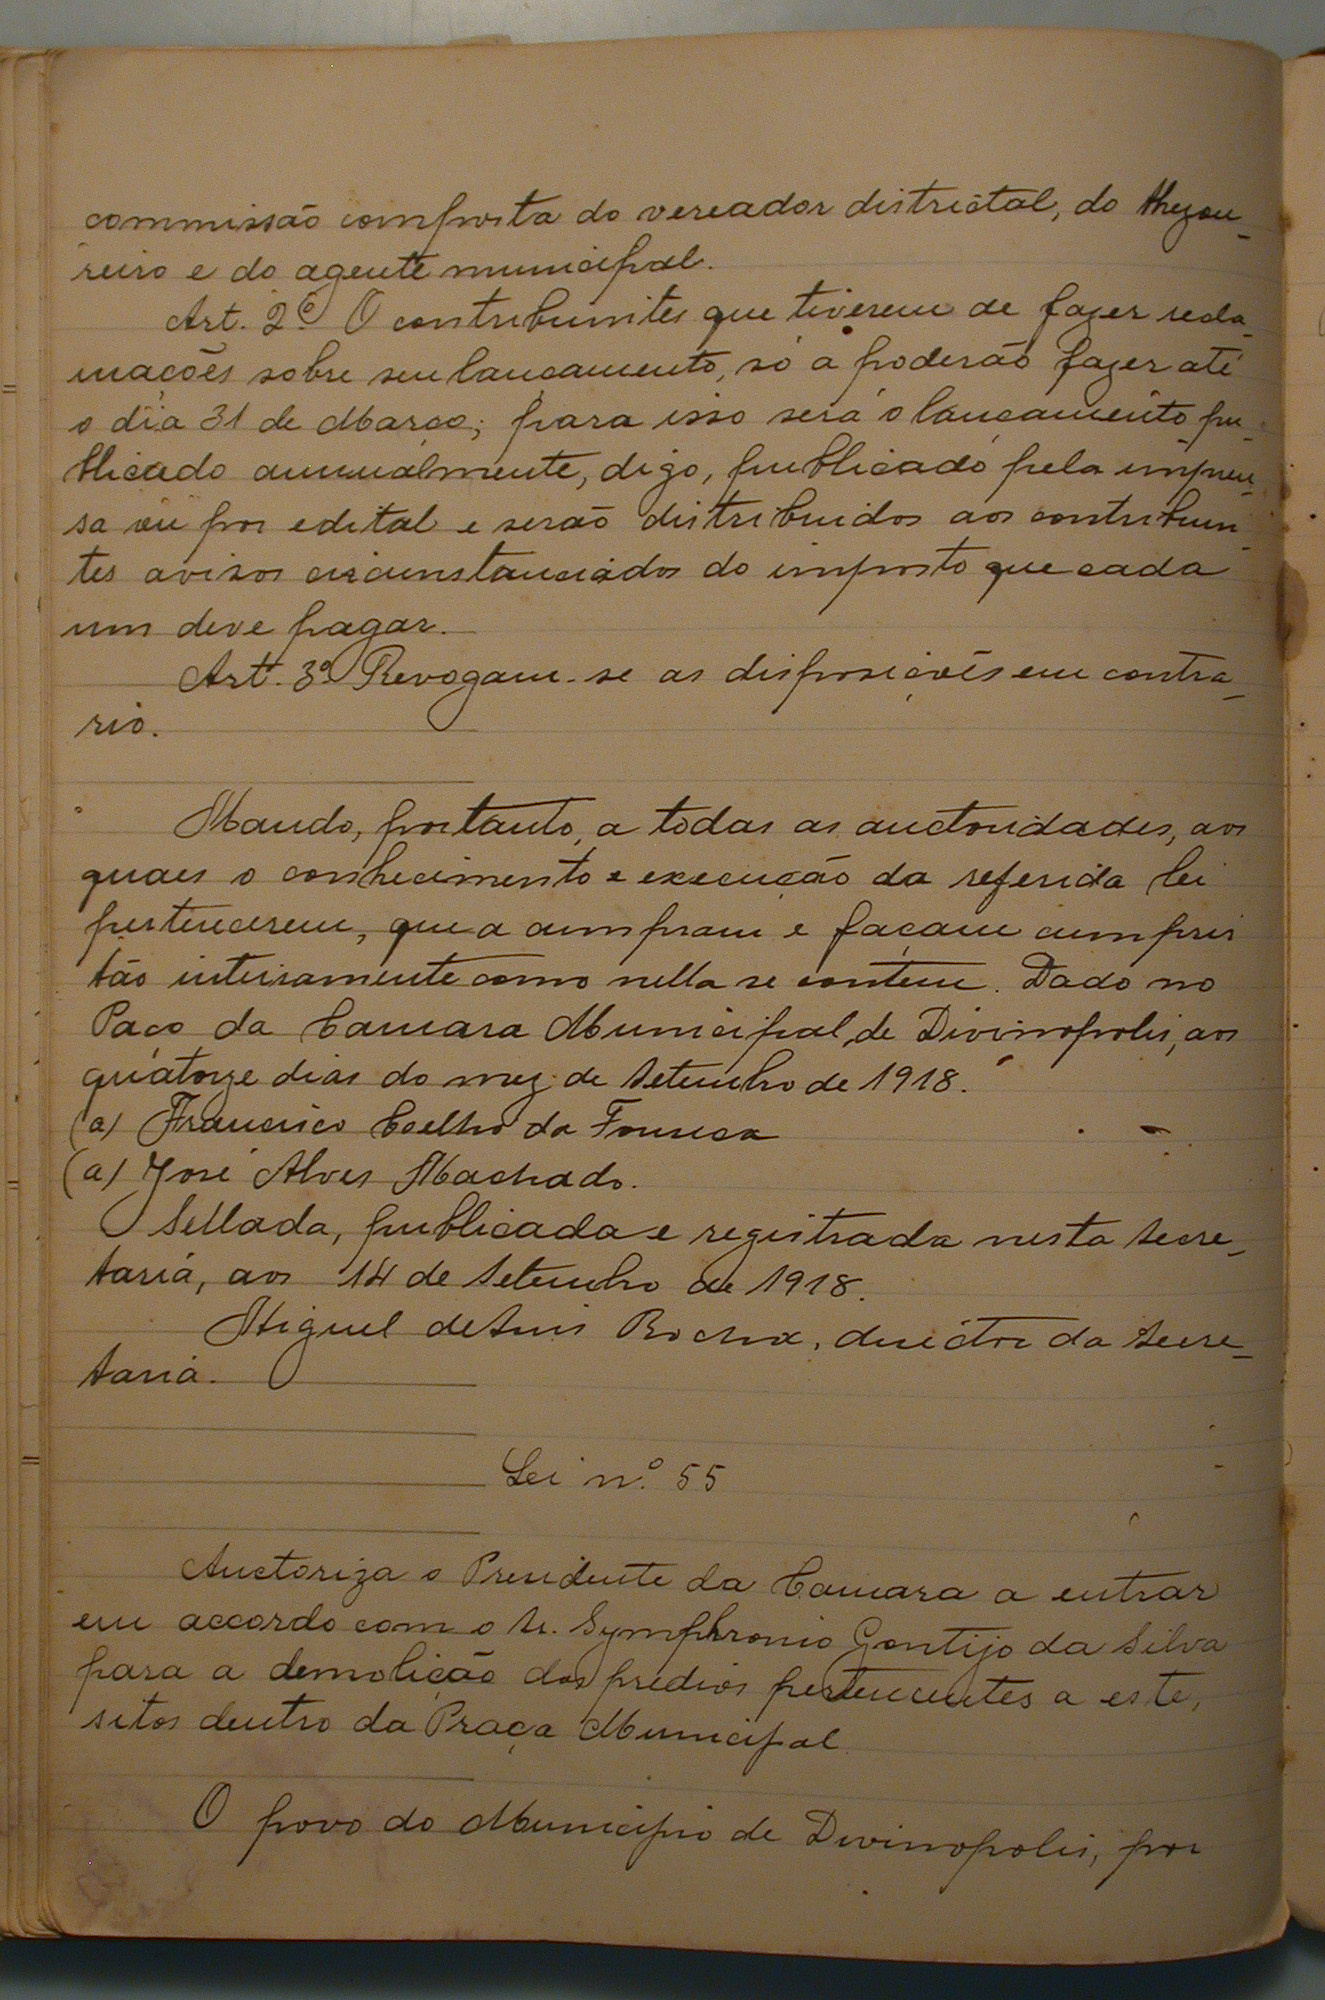 commissão composta do vereador districtal, do thezou-
reiro e do agente municipal.
Art. 2º O contribuintes que tiverem de fazer recla-
mações sobre seu lançamento, só a poderão fazer até
o dia 31 de Março; para isso será o lançamento pu-
blicado annualmente, digo, publicado pela impren-
sa ou por edital e serão distribuidos aos contribuin-
tes avisos circunstanciados do imposto que cada
um deve pagar.
Art. 3º Revogam-se as disposições em contra-
rio.
Mando, portanto, a todas as auctoridades, aos
quaes o conhecimento e execução da referida lei
pertencerem, que a cumpram e façam cumprir
tão inteiramente como nella se contem. Dado no
Paço da Camara Municipal de Divinopolis, aos
quatorze dias do mez de Setembro de 1918.
(a) Francisco Coelho da Fonseca
(a) José Alves Machado.
Sellada, publicada e registrada nesta Secre-
taria, aos 14 de Setembro de 1918.
Miguel de Rocha, director da Secre-
taria.
Lei nº 55
Auctoriza o Presidente da Camara a entrar
em accordo com o Sr. Symphronio Gontijo da Silva
para a demolição dos predios pertencentes a este,
sitos dentro da Praça Municipal
O povo do Municipio de Divinopolis, por